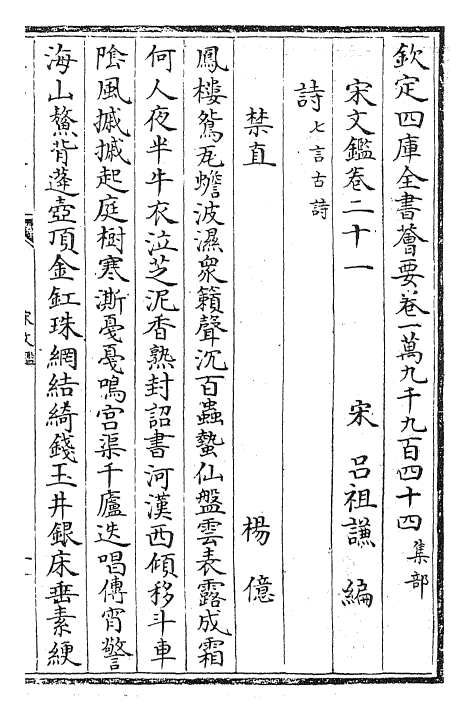 欽定四庫全書薈要卷一萬九千九百四十四 集部
宋文鑑卷二十一 宋 呂祖謙 編
詩 七言古詩
禁直 楊億
鳳樓鴛瓦蟾波濕衆籟聲沉百蟲蟄仙盤雲表露成霜
何人夜半牛衣泣芝泥香熟封詔書河漢西傾移斗車
陰風摵摵起庭樹寒澌戞戞鳴宮渠千廬迭唱傳宵警
海山鰲背蓬壺頂金缸珠網結綺錢玉井銀床垂素綆
宋文鑑
一